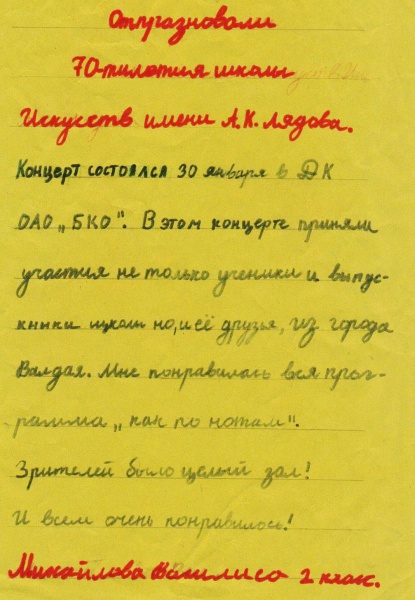 Отпразновали
70-тилотия школы
Искусств имени А.К. Лядова.
Концерт состоялся 30 января в ДК
ОАО „БКО". В этом концерте приняли
участия не только ученики и выпус-
кники школы но, и её друзья, из города
Валдая. Мне понравилась вся прог-
рамма „как по нотам".
Зрителей было целый зал!
И всем очень понравилось!
Михайлова Василиса 2 класс.